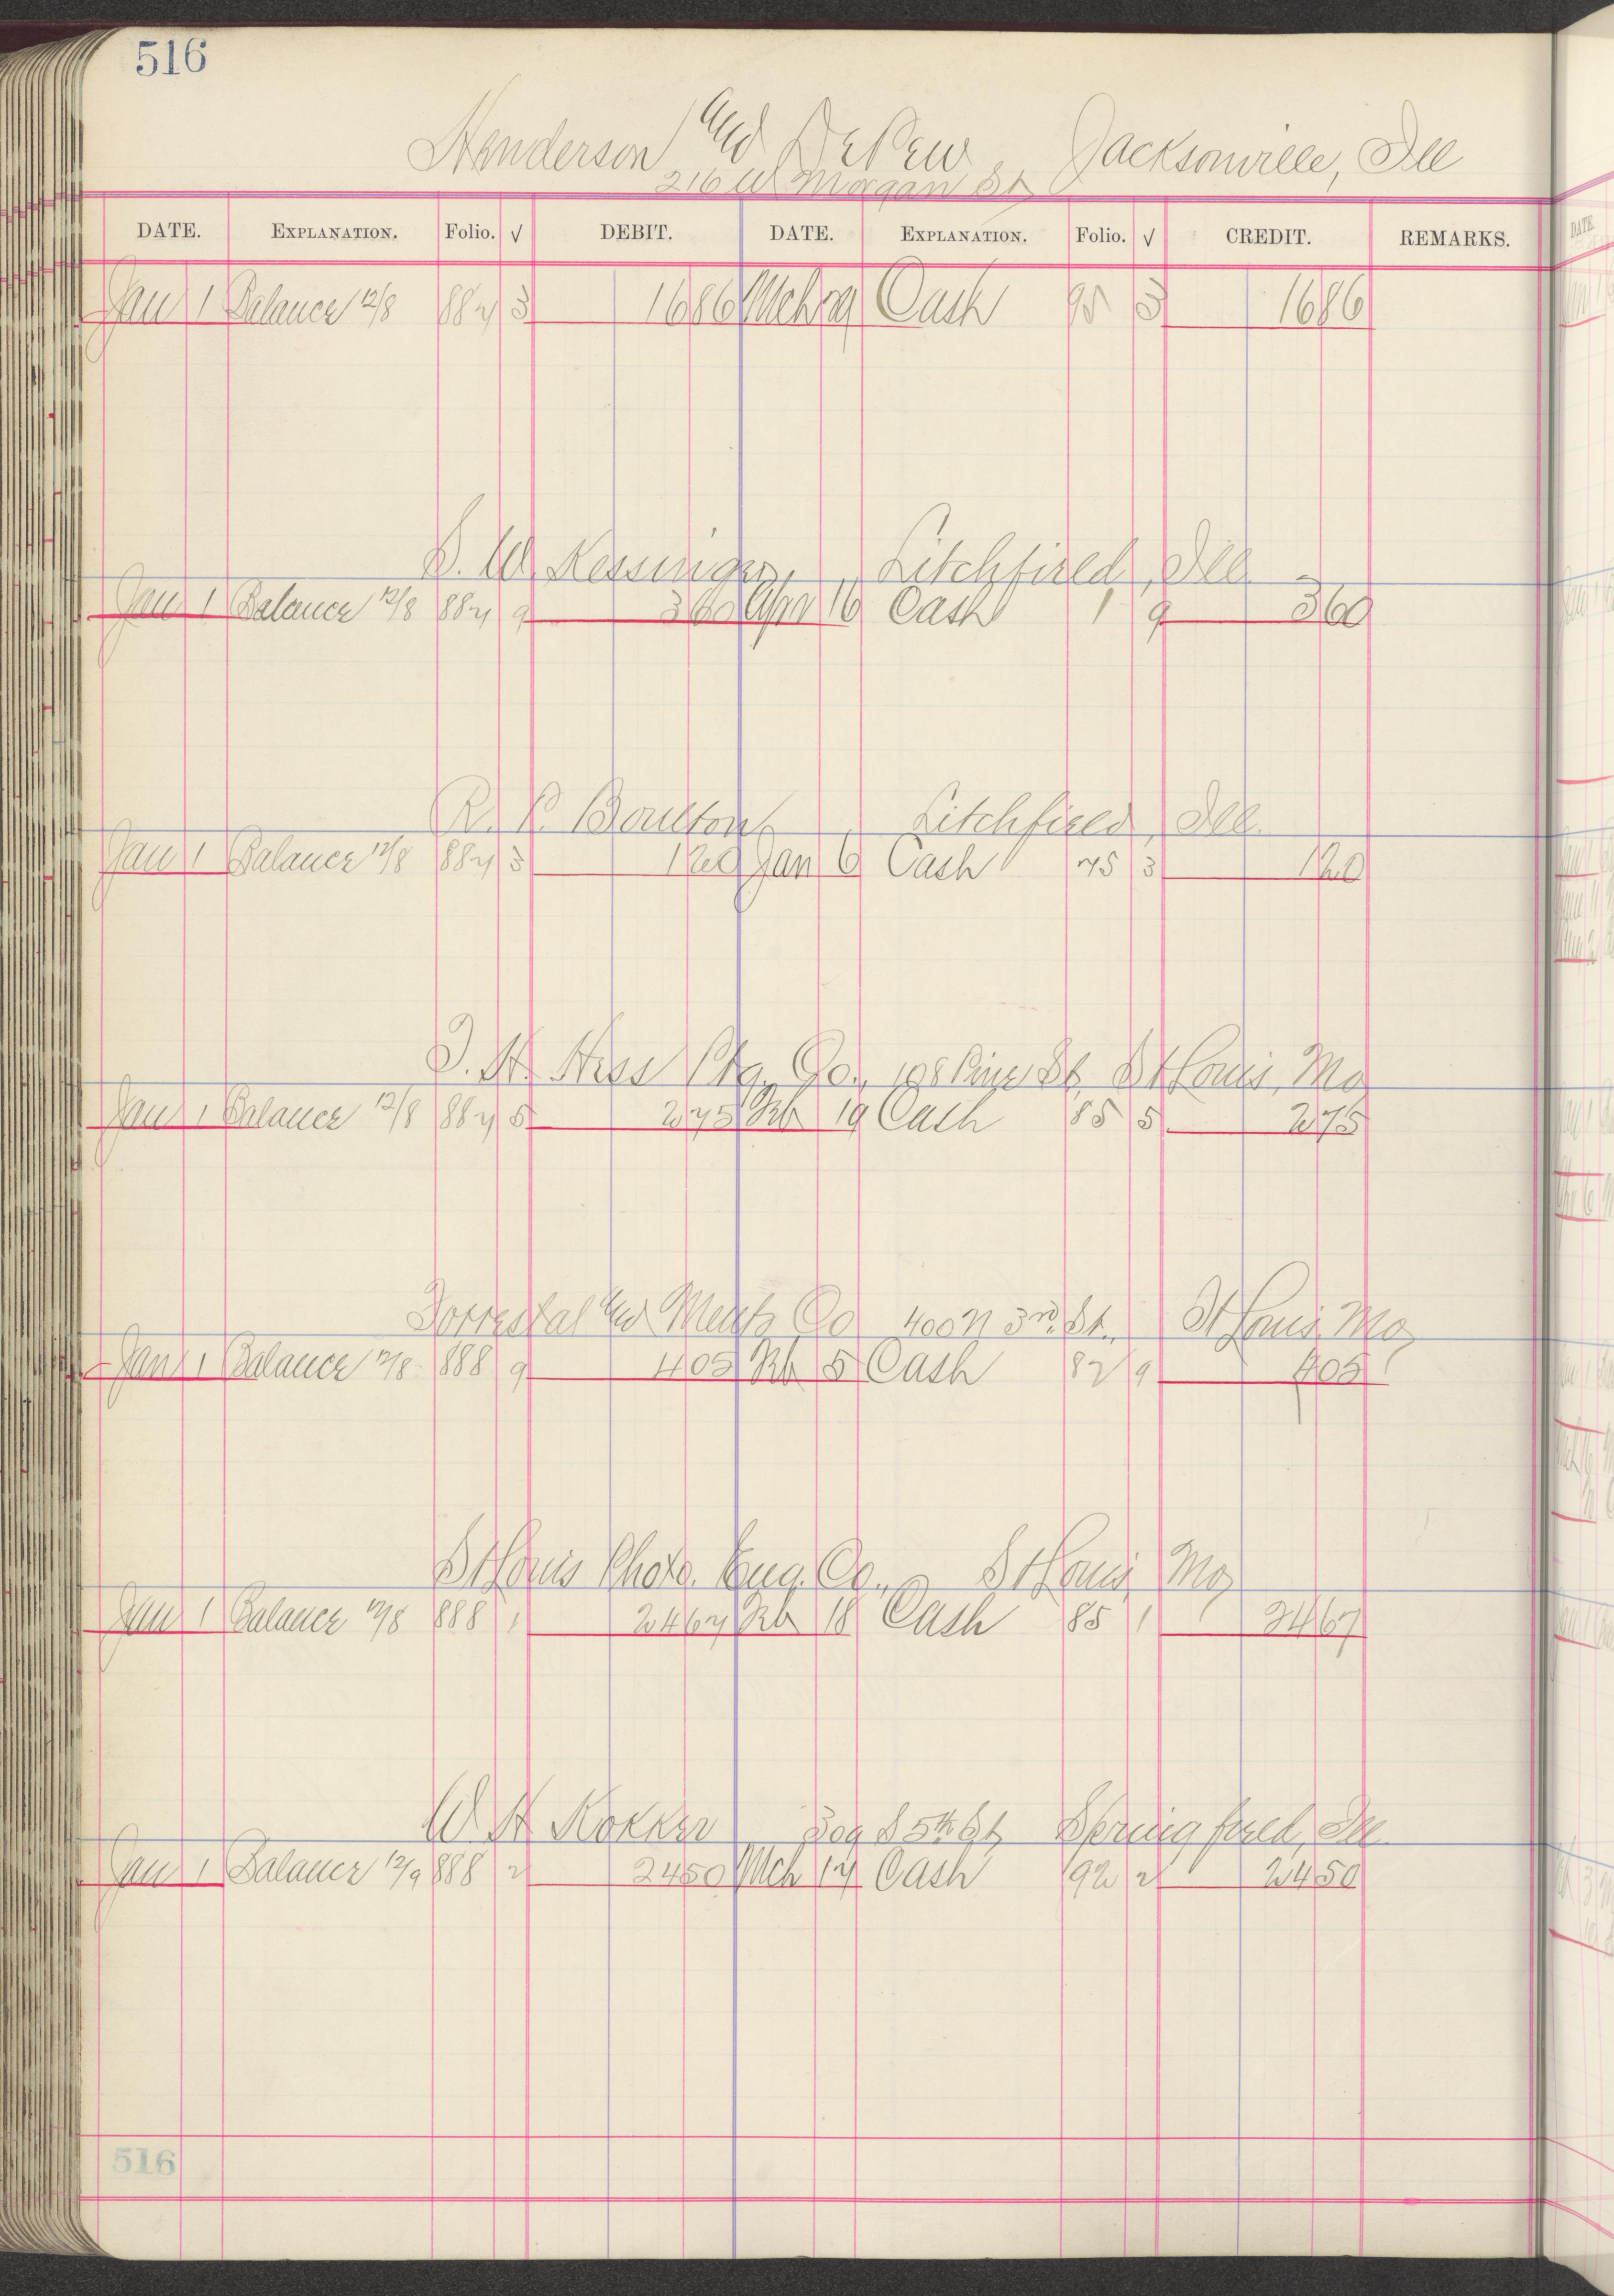 516
Henderson and DePew, Jacksonville, Ill
216 W Morgan St
DATE. EXPLANATION. Folio. √ DEBIT. DATE. EXPLANATION. Folio. √ CREDIT. REMARKS.
Jan 1 Balance 12/8 887 3 1686 Mch Cash 3 1686
Kessinger, Litchfield, Ill
Jan 1 Balance 12/8 887 9 360 Apr 16 Cash 1 9 360
R. P. Boulton, Litchfield, Ill.
Jan 1 Balance 12/8 887 3 120 Jan 6 Cash 75 3 120
Hess Co, Pine St, St Louis, Mo
Jan 1 Balance 12/8 887 5 275 Feb 19 Cash 85 5 275
and Co 400 N 3rd. St. St Louis Mo
Jan 1 Balance 12/8 888 9 405 Feb 5 Cash 82 9 405
St Louis Photo. Eng. Co., St Louis, Mo
Jan 1 Balance 12/8 888 1 2467 Feb 18 Cash 85 1 2467
W H 5th St Springfield, Ill
Jan 1 Balance 12/9 888 2 2450 Mch 17 Cash 92 2 2450
516